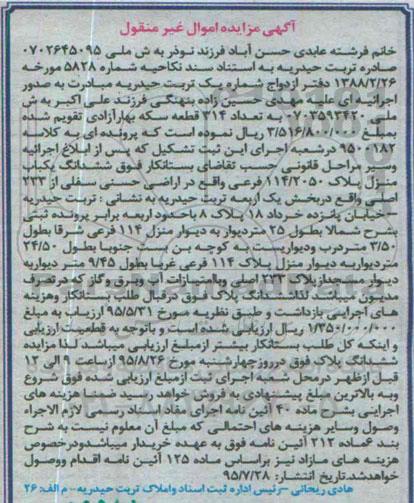 آگهی مزایده اموال غیر منقول
خانم فرشته عابدی حسن آباد فرزند نوذر به ش ملی ۰۷۰۲۶۴۵۰۹۵
صادره تربت حیدریه به استناد سند نکاحیه شماره ۵۸۲۸ مورخه
۱۳۸۸/۲/۲۶ دفتر ازدواج شماره یک تربت حیدریه مبادرت به صدور
اجرائیه ای علیه مهدی حسین زاده بنهنگی فرزند علی اکبر به ش
ملی ۰۷۰۳۵۹۳۴۲۰ به تعداد ۳۱۴ قطعه سکه بهارآزادی تقویم شده
بمبلغ ۳/۵۱۶/۸۰۰/۰۰۰ ریال نموده است که پرونده ای به کلاسه
۹۵۰۰۱۸۲ درشعبه اجرای این ثبت تشکیل که پس از ابلاغ اجرائیه
وسیر مراحل قانونی حسب تقاضای بستانکار فوق ششدانگ یکباب
منزل پلاک ۱۱۴/۲۰۵۰ فرعی واقع در اراضی حسنی سفلی از ۲۳۳
اصلی واقع دربخش یک اربعه تربت حیدریه به نشانی : تربت حیدریه
–خیابان پانزده خرداد ۱۸ پلاک ۸ باحدود اربعه برابر پرونده ثبتی
بشرح شمالا بطول ۲۵ متردیوار به دیوار منزل ۱۱۴ فرعی شرقا بطول
۳/۵۰ متردرب ودیواریست به کوچه بن بست جنوبا بطول ۲۴/۵۰
متردیواربه دیوار منزل پلاک ۱۱۴ فرعی غربا بطول ۹/۴۵ متر دیواربه
دیوار مسجدازپلاک ۲۳۳ اصلی وباامتیازات آب وبرق وگاز که درتصرف
مدیون میباشد لذاششدانگ پلاک فوق درقبال طلب بستانکار وهزینه
های اجرایی بازداشت و طبق نظریه مورخ ۹۵/۵/۳۱ ارزیاب به مبلغ
۱/۳۵۰/۰۰۰/۰۰۰ ریال ارزیابی شده است و باتوجه به قطعیت ارزیابی
و اینکه کل طلب بستانکار بیشتر ازمبلغ ارزیابی میباشد لذا مزایده
ششدانگ پلاک فوق درروزچهارشنبه مورخ ۹۵/۸/۲۶ ازساعت ۹ الی ۱۲
قبل ازظهر درمحل شعبه اجرای ثبت ازمبلغ ارزیابی شده فوق شروع
وبه بالاترین مبلغ پیشنهادی به فروش خواهد رسید ضمنا هزینه های
اجرایی بشرح ماده ۴۰ آئین نامه اجرای مفاد اسناد رسمی لازم الاجراء
وصول وسایر هزینه های احتمالی که مبلغ آن معلوم نیست به شرح
بند ۶ماده ۲۱۲ آئین نامه فوق به عهده خریدار میباشدودرخصوص
هزینه های مازاد نیز براساس ماده ۱۲۵ آئین نامه اقدام ووصول
خواهدشد.تاریخ انتشار: ۹۵/۷/۲۸
هادی ریحانی –رئیس اداره ثبت اسناد واملاک تربت حیدریه– م الف: ۲۶